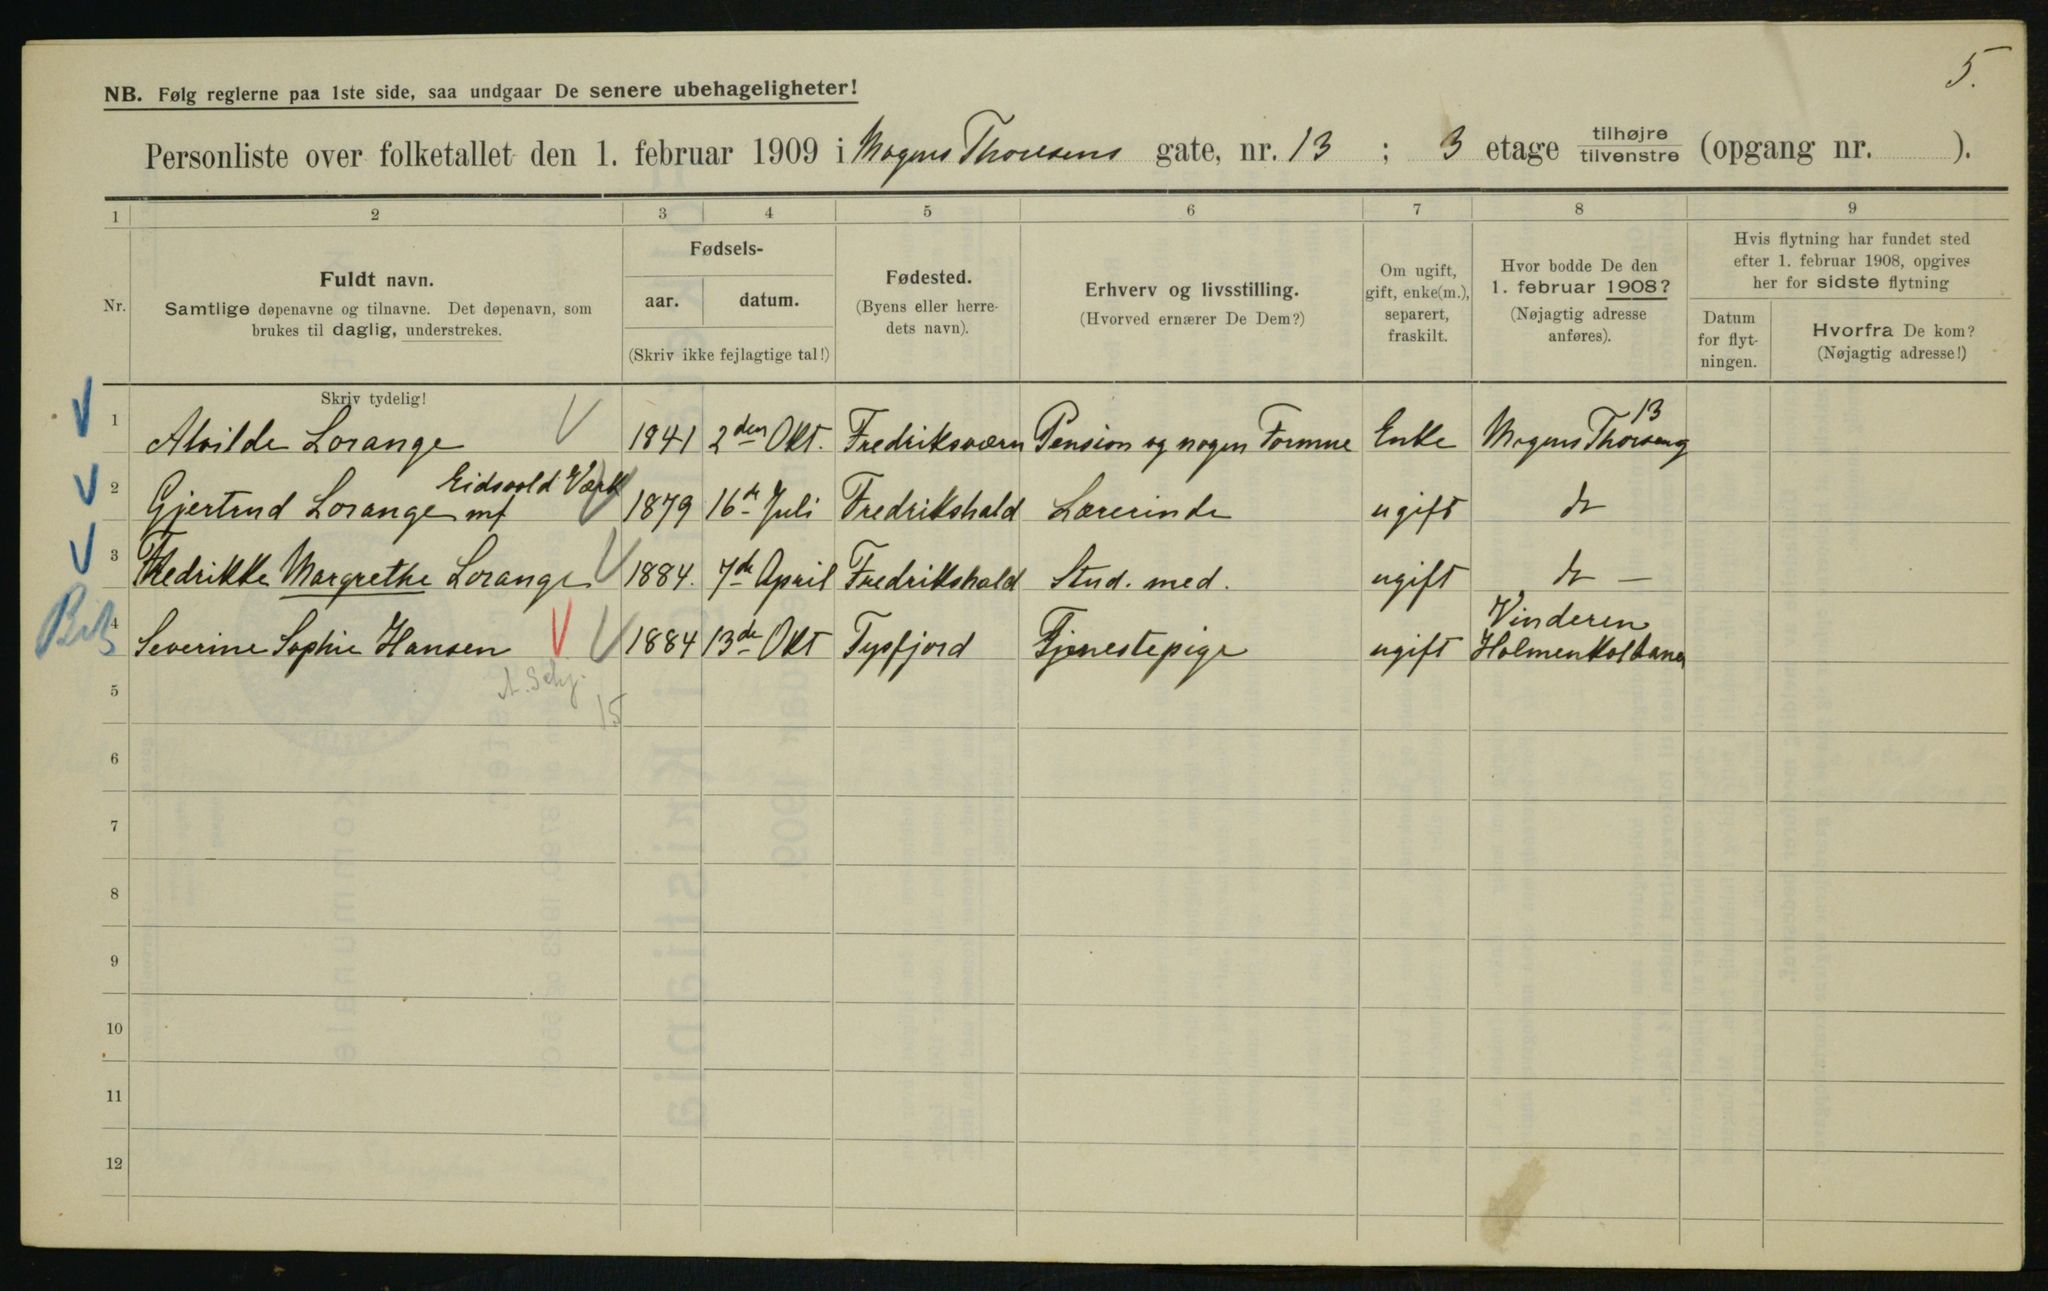 5.
NB. Følg reglerne paa 1ste side, saa undgaar De senere ubehageligheter!
Personliste over folketallet den 1. februar 1909 i Mogens Thorsens gate, nr. 13 ; 3 etage tilhøjre tilvenstre (opgang nr. ).
1 2 3 4 5 6 7 8 9
Nr.
Fuldt navn.
Samtlige døpenavne og tilnavne. Det døpenavn, som
brukes til daglig, understrekes.
Fødsels-
aar. datum.
(Skriv ikke fejlagtige tal!)
Fødested.
(Byens eller herre-
dets navn).
Erhverv og livsstilling.
(Hvorved ernærer De Dem?)
Om ugift,
gift, enke(m.),
separert,
fraskilt.
Hvor bodde De den
1. februar 1908?
(Nøjagtig adresse
anføres).
Hvis flytning har fundet sted
efter 1. februar 1908, opgives
her for sidste flytning
Datum
for flyt-
ningen.
Hvorfra De kom?
(Nøjagtig adresse!)
Skriv tydelig!
1 Alvilde Lorange 1841 2den Okt. Fredriksværn Pension og nogen Formue Enke Mogens Thorseng 13
Eidsvold Værk
2 Gjertrud Lorange mf 1879 16de Juli Fredrikshald Lærerinde ugift do
3 Fredrikke Margrethe Lorange 1884. 7de April Fredrikshald Stud. med. ugift do —
4 Severine Sophie Hansen 1884 13de Okt Tysfjord Tjenestepige ugift Vinderen
Holmenkolbanen
A. Schj.
15
5
6
7
8
9
10
11
12